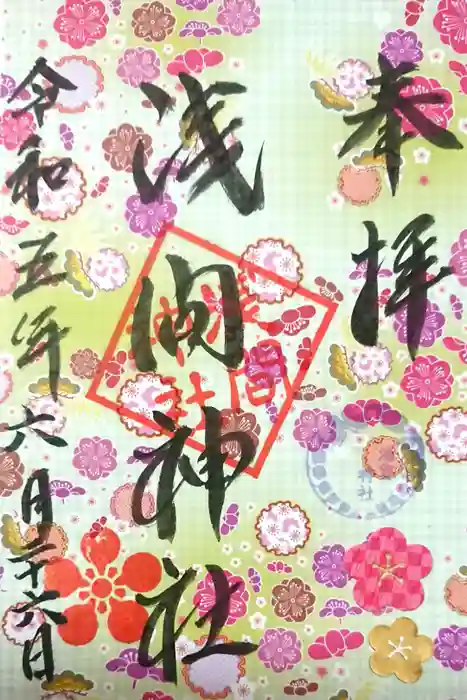 奉拝
浅間神社
令和五年六月二十六日
浅間
神社
神社